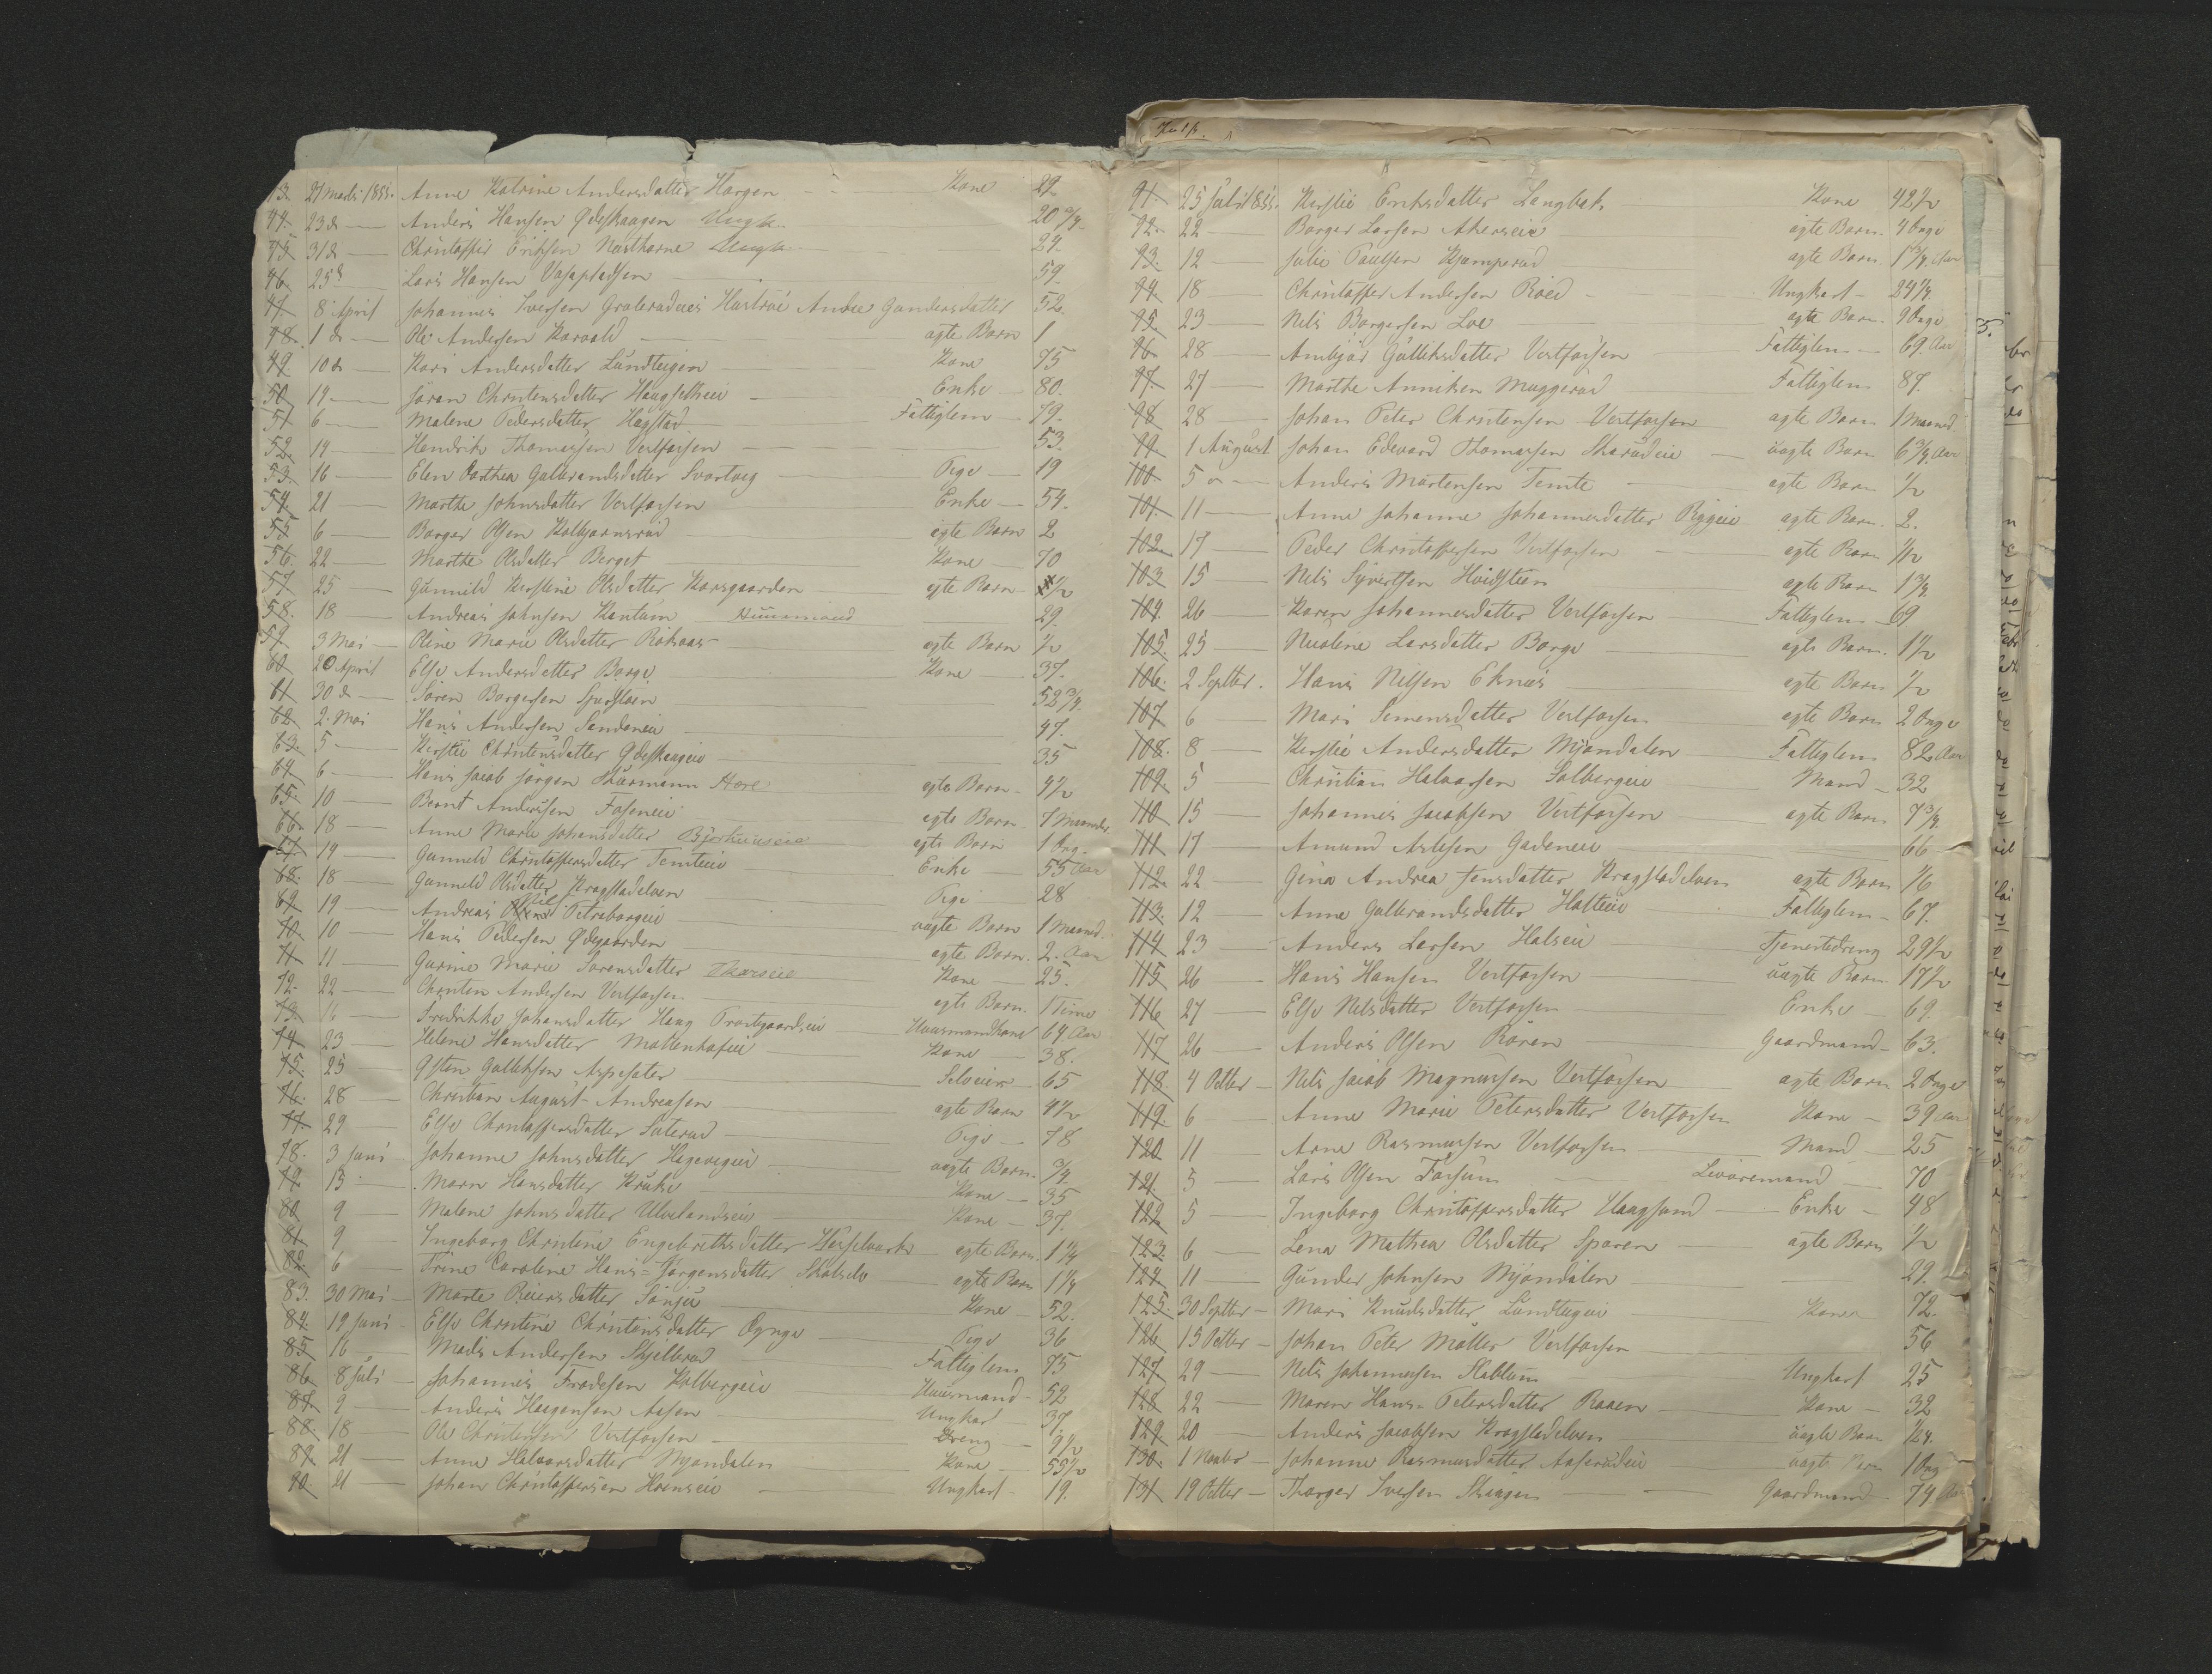 43. 21 Marts 1855. Anne Katrine Andersdatter Horgen Kone 29.
44. 23 d Anders Hansen Ødeskaugen Ungk. 20 3/4
45. 31 d Christoffer Eriksen Ungk. 24.
46. 25 d Lars Hansen 59
47. 8 April Johannes Iversen Hustroe Andrea Gundersdatter 52.
48. 1 d Ole Andersen ægte Barn 1
49. 10 d Kari Andersdatter Lundteigen Kone 75
50. 14 Joran Christensdatter Enke 80.
51 6 Malene Pedersdatter Hagstad Fattiglem 79.
52. 14 Hendrik Thomassen Vestfossen 53.
53. 16 Elen Dorthea Gulbrandsdatter Pige 19
54. 21 Marthe Johnsdatter Vestfossen Enke 54.
55 6 Borger Olsen Kolbjørnsrud ægte Barn 2
56. 22 Marthe Olsdatter Berget Kone 70
57 25 Gunnild Kirstine Olsdatter Korsgaarden ægte Barn 1/2
58. 18 Andreas Johnsen Huusmand 29.
59. 3 Mai Oline Marie Olsdatter ægte Barn 1/2
60. 20 April Else Andersdatter Borge Kone 37.
61 30 d Søren Borgersen 52 3/4.
62. 2. Mai Hans Andersen 47.
63. 5 Kirstie Christensdatter 35
64 6 Hans Jacob Jørgen Thurmann Hore ægte Barn 4 1/2
65. 10 Bernt Andersen ægte Barn 7 Maander.
66. 18 Anne Marie Johansdatter ægte Barn 1 Dag.
67. 14 Gunneld Christoffersdatter Temteeie Enke 55 Aar
68. 18 Gunneld Olsdatter Krogstadelven Pige 28
69. 19 Andreas Petreborgeie uægte Barn 1 Maaned.
70. 10 Hans Pedersen Ødegaarden ægte Barn. 2. Aar
71. 11 Gurine Marie Sørensdatter Kone 25.
72. 22 Christen Andersen Vestfossen ægte Barn. 1 Time
73. 16 Fredrikke Johansdatter Haug Huusmandkone 64 Aar
74. 23 Helene Hansdatter Kone 38.
75. 25 Østen Gulliksen Selveier 65
76. 28 Christian August Andreasen ægte Barn 4 1/2
77. 29 Else Christoffersdatter Pige 78
78. 3 Juni Johanne Johnsdatter uægte Barn 3/4.
79. 13 Maren Hansdatter Kruke Kone 35
80. 9 Malene Johnsdatter Ulvelandseie Kone 37.
81. 9 Ingeborg Christine Engebrethsdatter ægte Barn. 1 1/4
82. 6 Trine Caroline Hans=Jørgensdatter Skotselv ægte Barn 1 1/4
83. 30 Mai Marte Reiersdatter Kone 52.
84. 19 Juni Else Christine Christensdatter Pige 36
85 16 Mads Andersen Skjellerud Fattiglem 75
86. 8 Juli Johannes Frodesen Huusmand 52
87. 9 Anders Haagensen Aasen Ungkar 37.
88. 18 Ole Christensen Vestfossen Dreng 9 1/2
89. 21 Anne Halvorsdatter Mjøndalen Kone 55 1/2
90. 21 Johan Christoffersen Ungkarl 19.
91. 25 Juli 1855. Kirstie Eriksdatter Langbak Kone 42 1/2
92. 22 Borger Larsen Akerseie ægte Barn. 4 Dage
93. 12 Julie Paulsen Kjamperud ægte Barn. 1 3/4. Aar
94. 18 Christoffer Andersen Røed Ungkarl 24 1/4.
95. 23 Nils Borgersen Loe ægte Barn. 9 Dage
96. 28 Ambjør Gulliksdatter Vestfossen Fattiglem 69. Aar
97. 27 Marthe Anniken Muggerud Fattiglem 87.
98. 28 Johan Peter Christensen Vestfossen ægte Barn 1 Maaned.
99. 1 August Johan Edevard Thomassen uægte Barn 6 3/4. Aar
100. 5 Anders Martensen Temte ægte Barn 1/2
101. 11 Anne Johanne Johannesdatter ægte Barn. 2.
102. 17 Peder Christoffersen Vestfossen ægte Barn 1/12
103. 15 Nils Syvertsen Hvidsteen ægte Barn 1 3/4.
104. 26 Karen Johannesdatter Vestfossen Fattiglem 69
105. 25 Nicoline Larsdatter Borge ægte Barn. 1 1/2
106. 2 Septber. Hans Nilsen Eknes ægte Barn 1/2
107. 6 Mari Simensdatter Vestfossen ægte Barn 2 Dage
108. 8 Kirstie Andersdatter Mjøndalen Fattiglem 82. Aar
109. 5 Christian Halvorsen Solbergeie Mand 32
110. 15 Johannes Jacobsen Vestfossen ægte Barn 7 3/4.
111. 17 Amund Arnesen 66
112. 22 Gina Andrea Jensdatter Krogstadelven ægte Barn 1/6
113. 12 Anne Gulbrandsdatter Fattiglem 67.
114 23 Anders Larsen Tjenestedreng 29 1/2
115 26 Hans Hansen Vestfossen uægte Barn. 17 1/2
116 27 Else Nilsdatter Vestfossen Enke 69.
117 26 Anders Olsen Røren Gaardmand 63.
118. 4 Octber Nils Jacob Magnussen Vestfossen ægte Barn 2 Dage
119. 6 Anne Marie Petersdatter Vestfossen Kone 39 Aar
120 11 Arne Rasmussen Vestfossen Mand 25
121. 5 Lars Olsen Fossum 70
122. 5 Ingeborg Christoffersdatter Haugsund Enke 48
123. 6 Lena Mathea Olsdatter Sporen ægte Barn 1/2
124. 11 Gunder Johnsen Mjøndalen 29.
125. 30 Septber Mari Knudsdatter Lundteigen Kone 72.
126. 13 Octber Johan Peter Møller Vestfossen 56
127. 29 Nils Johannessen Stablum Ungkarl 25
128 22 Maren Hans-Petersdatter Raaen Kone 32
129. 20 Anders Jacobsen Krogstadelven uægte Barn 1/24.
130. 1 Novbr Johanne Rasmusdatter uægte Barn 1 Dag
131 19 Octber Thorger Iversen Skaugen Gaardmand 74 Aar